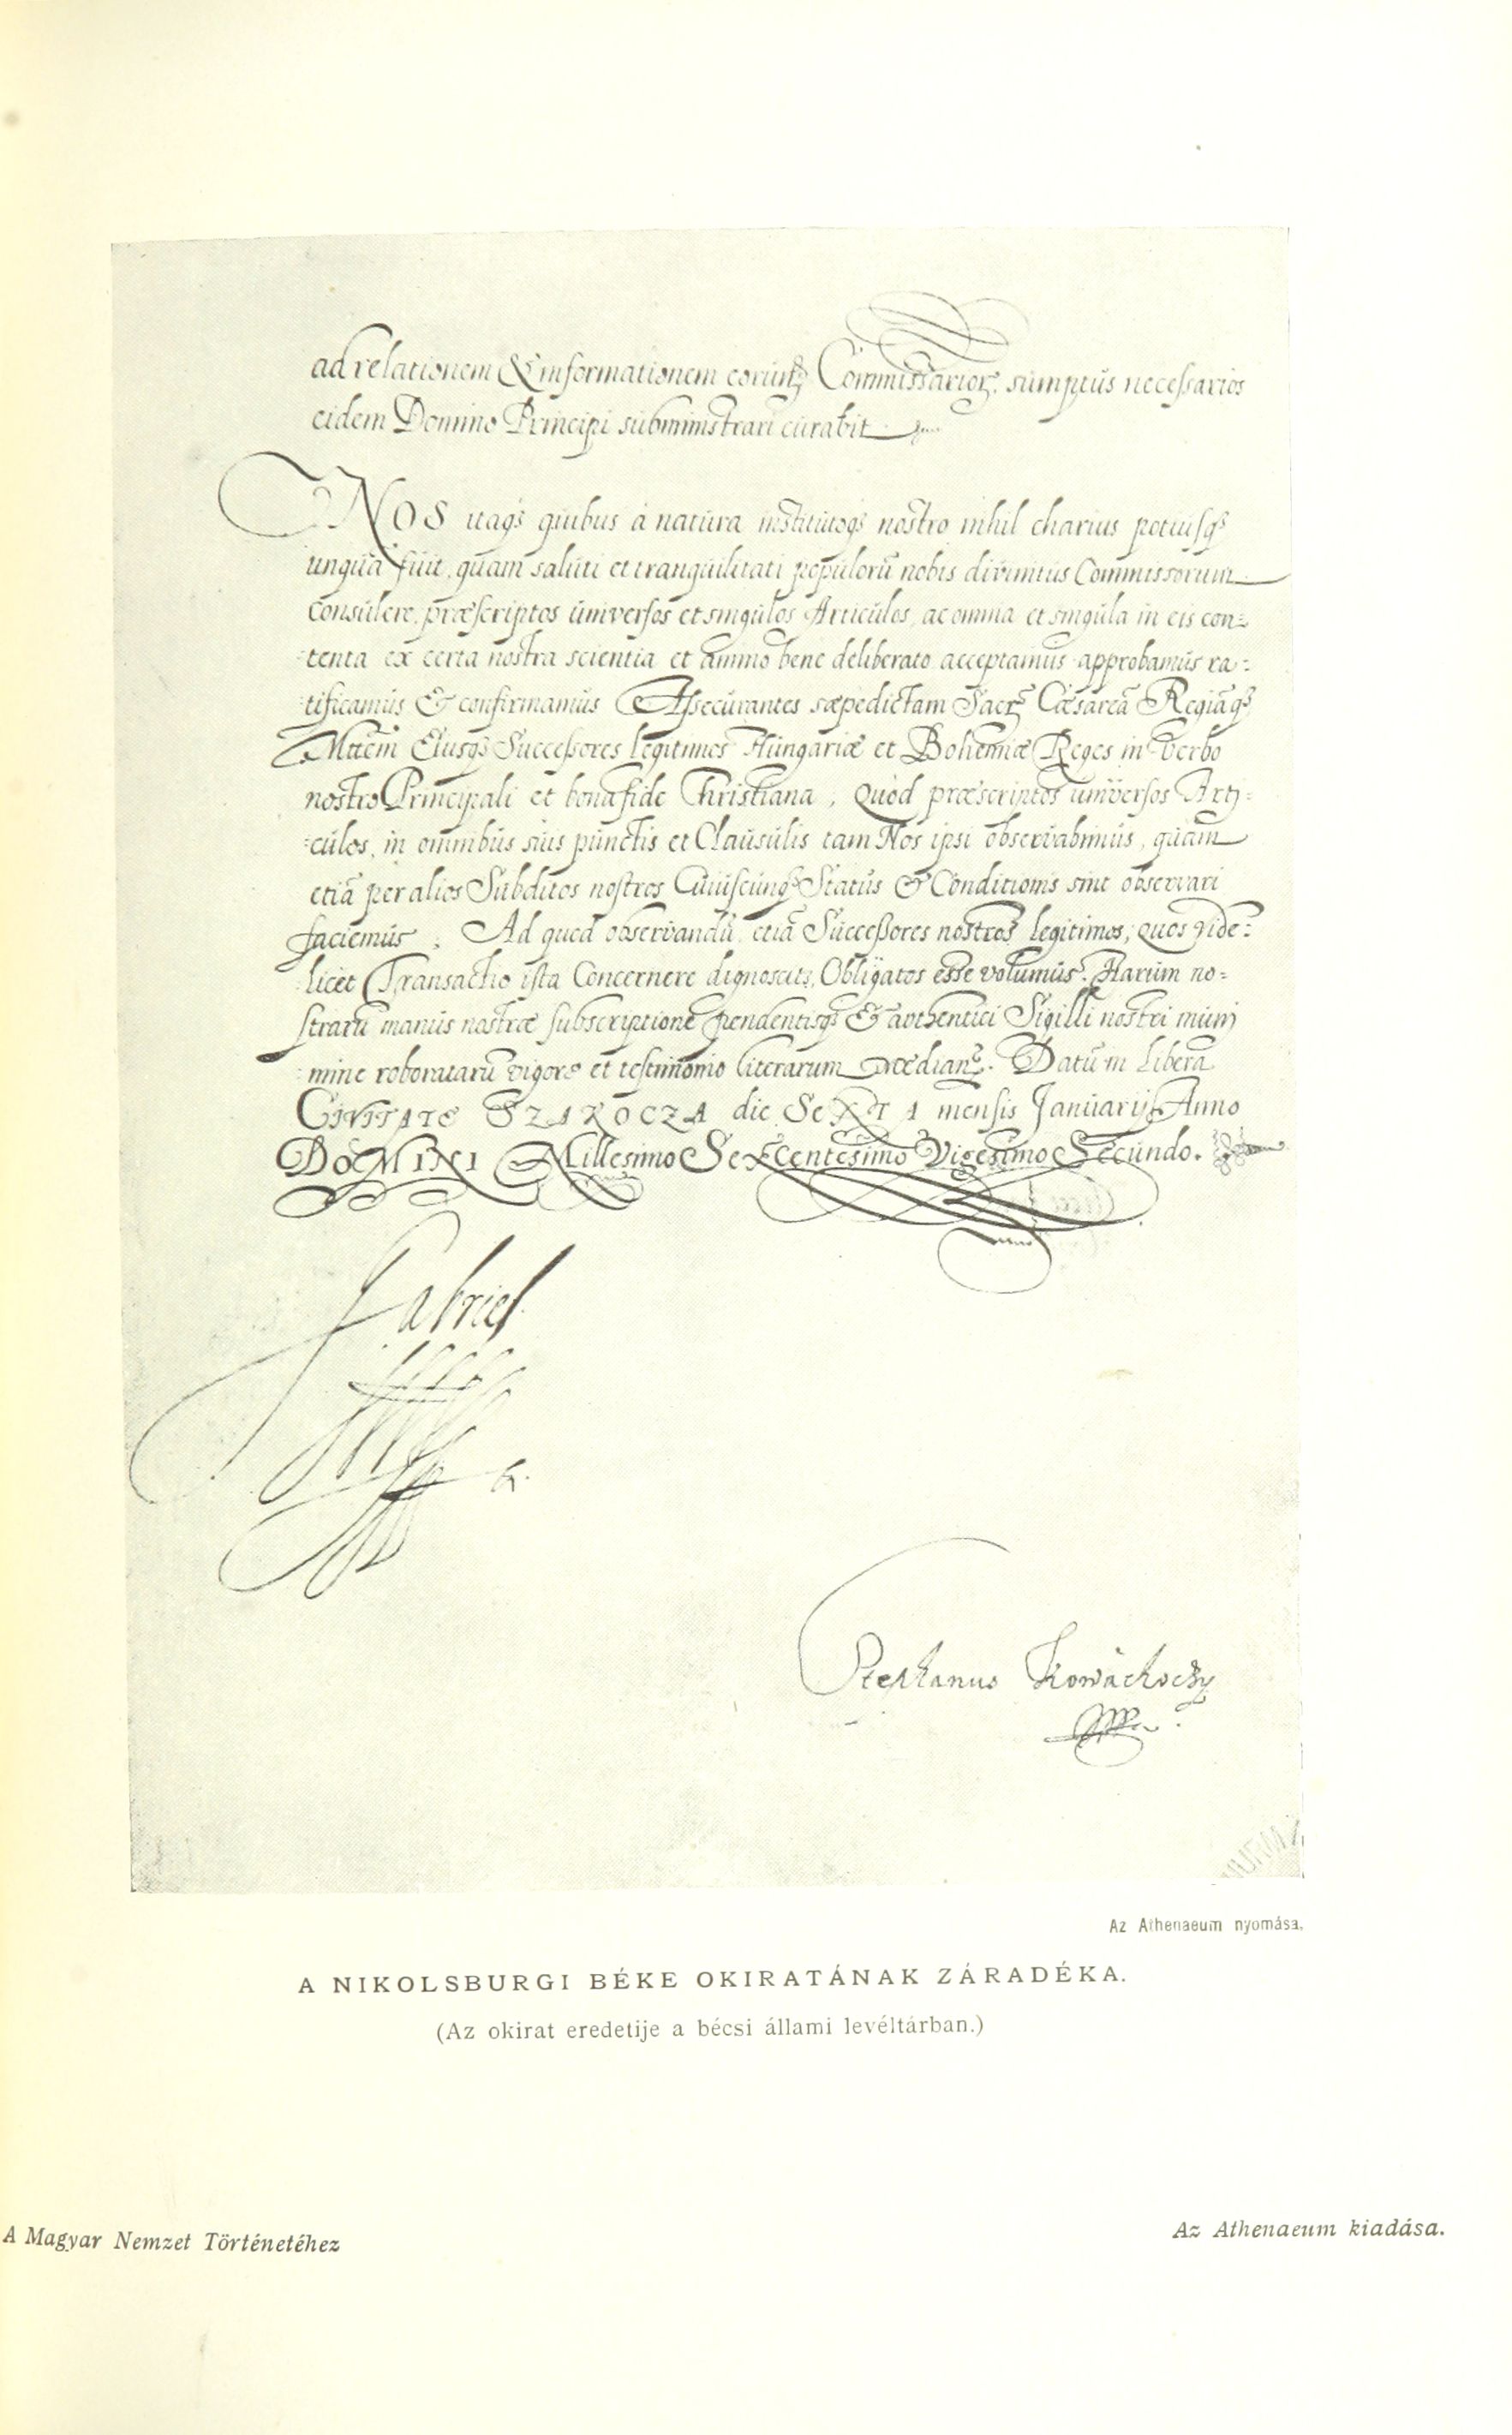 ad relationem & informationem eorund. Commissarior. sumptus necessarios
eidem Domino Principi subministrari curabit
NOS itaq́ quibus à natura institutoq́ nostro nihil charius potiusq́
unquā fuit, quam saluti et tranquilitati populorū nobis divinitus Commissorum
consulere, præscriptos universos et singulos Articulos, ac omnia et singula in eis con=
tenta ex certa nostra scientia et animo bene deliberato acceptamus approbamus ra=
tificamus & confirmamus Assecurantes sæpedictam Sacr. Cæsareā Regiāq́
Mttem Eiusq́ Successores legitimos Hungariæ et Bohemiæ Reges in Verbo
nostro Principali et bona fide Christiana, Quòd præscriptos universos Arti=
culos, in omnibus suis punctis et Clausulis tam Nos ipsi observabimus, quam
etiā per alios Subditos nostros Cuiuscunq́ Status & Conditionis sint observari
faciemus. Ad quod observandū etiā Successores nostros legitimos, quos vide=
licet Transactio ista Concernere dignoscit, Obligatos esse volumus. Harum no=
strarū manus nostræ subscriptione pendentisq́ & authentici Sigilli nostri muni
mine roboratarū vigore et testimonio literarum mediante. Datū in Libera
CIVITATE SZAKOCZA die SeXTA mensis Januarij Anno
DOMINI Millesimo Sexcentesimo Vigesimo Secundo.
Gabriel
Stephanus Kowachoczy
Az Athenaeum nyomása.
A NIKOLSBURGI BÉKE OKIRATÁNAK ZÁRADÉKA.
(Az okirat eredetije a bécsi állami levéltárban.)
A Magyar Nemzet Történetéhez
Az Athenaeum kiadása.